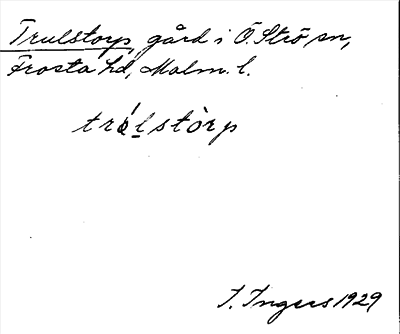 Trulstorp, gård i Ö. Strö sn,
Frosta hd, Malm. l.
trớlstòrp
I. Ingers 1929